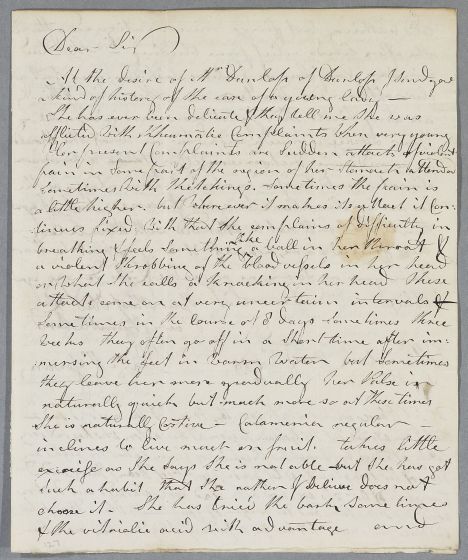 Dear Sir
At the desire of Mrs Dunlop of Dunlop I send you
a kind of history of the case of a young lady —
She has ever been delicate & they tell me she was
afflicted with Rheumatic Complaints when very young
Her present Complaints are Sudden attack of violent
pain in some part of the region of her stomach attended
sometimes with Retchings. Sometimes the pain is
a little higher. but wherever it makes its attack it con-
tinues fixed, with that she complains of difficulty in
breathing & feels something like a ball in her throat &
a violent throbbing of the blood vessels in her head
or what she calls a knocking in her head These
attacks come on at very uncertain intervals
Sometimes in the course of 8 days sometimes three
weeks they often go off in a short time after im-
mersing the feet in warm water but sometimes
they leave her more gradually her Pulse is
naturally quick but much more so at these times
She is naturally costive — Catamenia regular
inclines to live most on fruit. takes little
as She says She is not able but she has got
such a habit that she rather I believe does not
choose it. She has tried the bark some times
& the vitriolic acid with advantage and